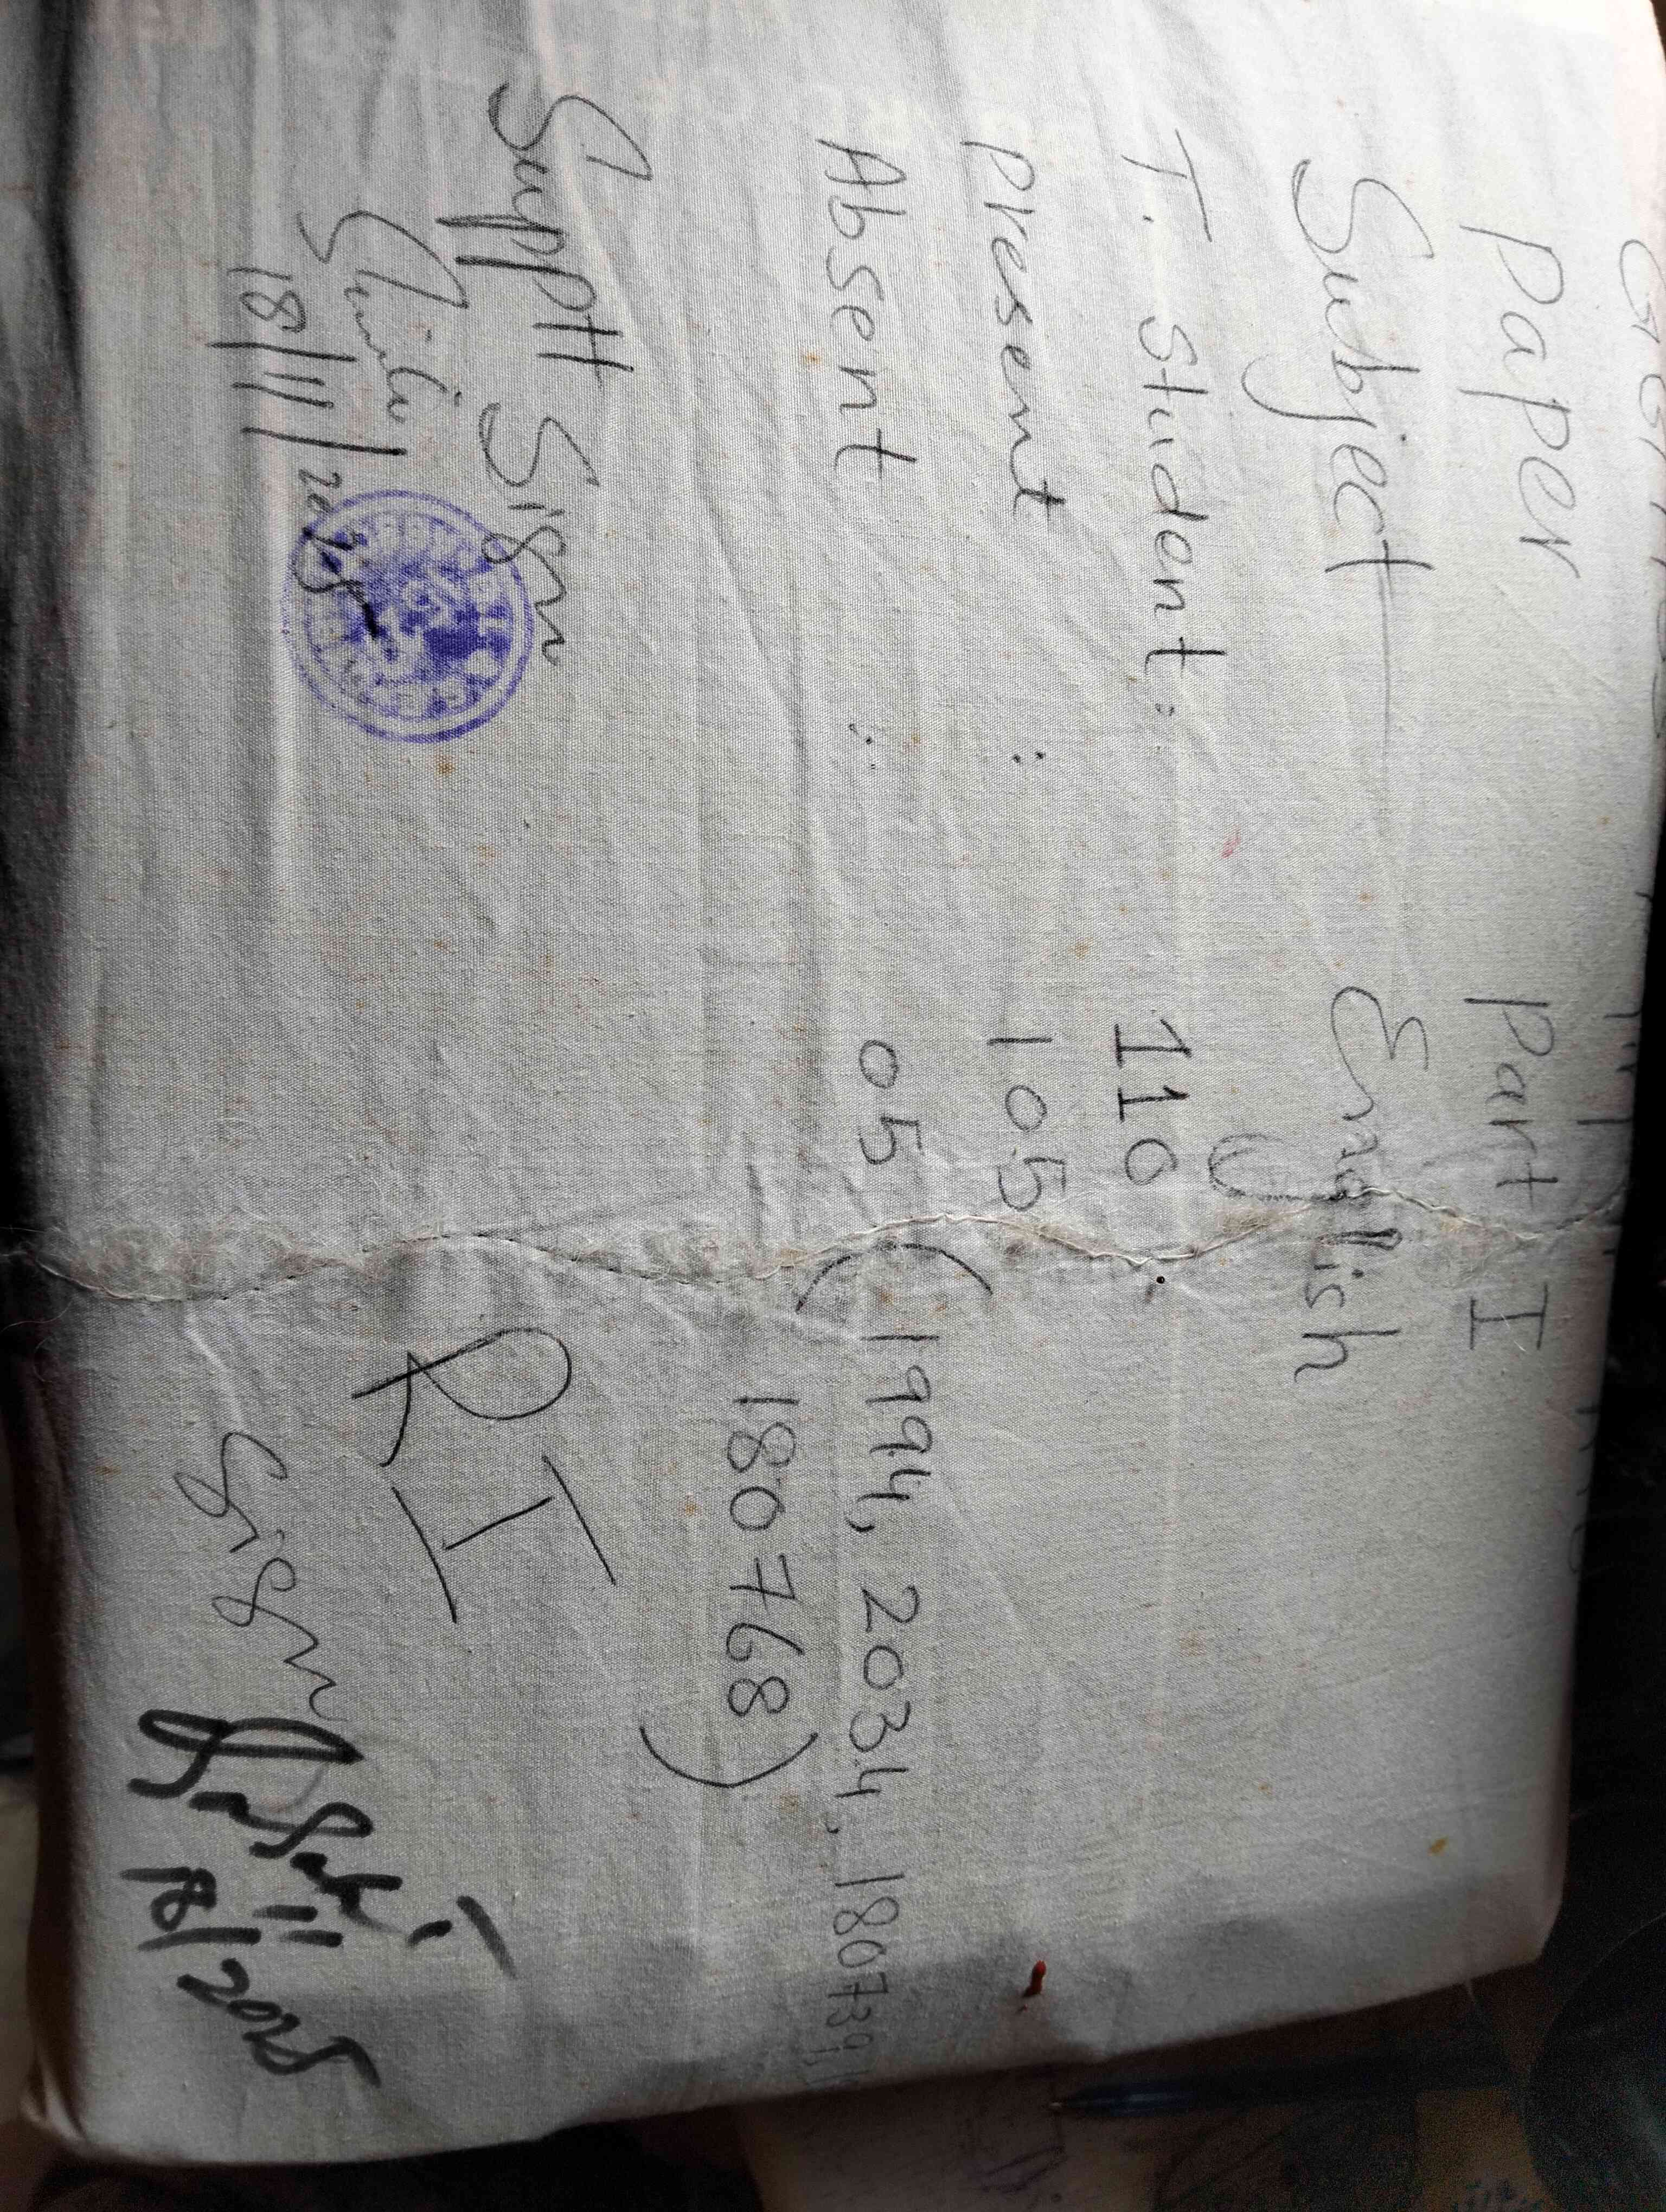 Paper Part I
Subject English
T. Student: 110
present : 105
Absent : 05 (1994, 2034, 180739,
180768)
Suppt Sign RI
18/11/2025 Sign
18/11/2025